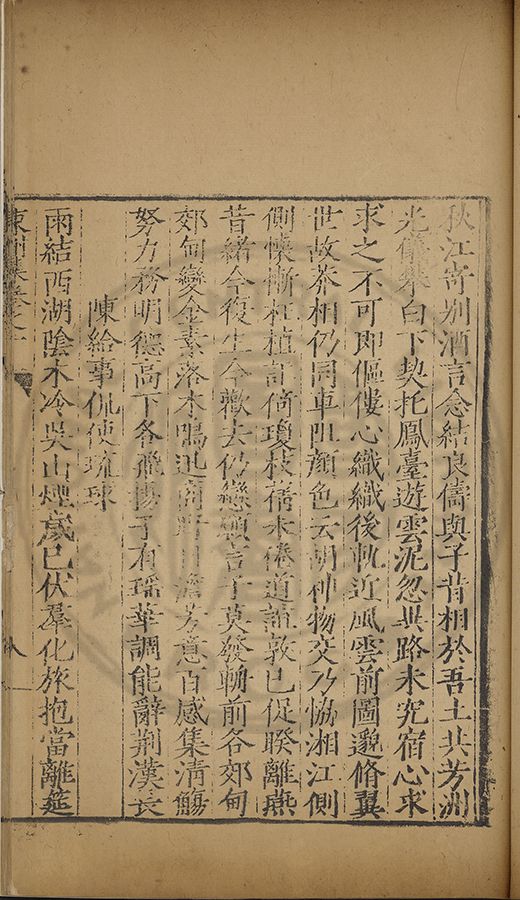 秋江寄別酒言念結良儔與子昔相於吾土共芳洲
光儀紫白下契托鳳臺遊雲泥忽異路未究宿心求
求之不可即傴僂心織織後軌近風雲前圖邈脩翼
世故莽相仍同車阻顏色云胡神物交乃協湘江側
側懷慚杜植詎倚瓊枝蒨未倦道誼敦已促暌離燕
昔緒今復生今歡去仍戀願言子莫發軔前各郊甸
郊甸變金素落木鳴迅商 芳意百感集淸觴
努力務明德高下各飛揚子有瑶華調能辭荆漢長
陳給事侃使琉球
雨結西湖陰木冷吳山煙歲已伏羣化旅抱當離筵